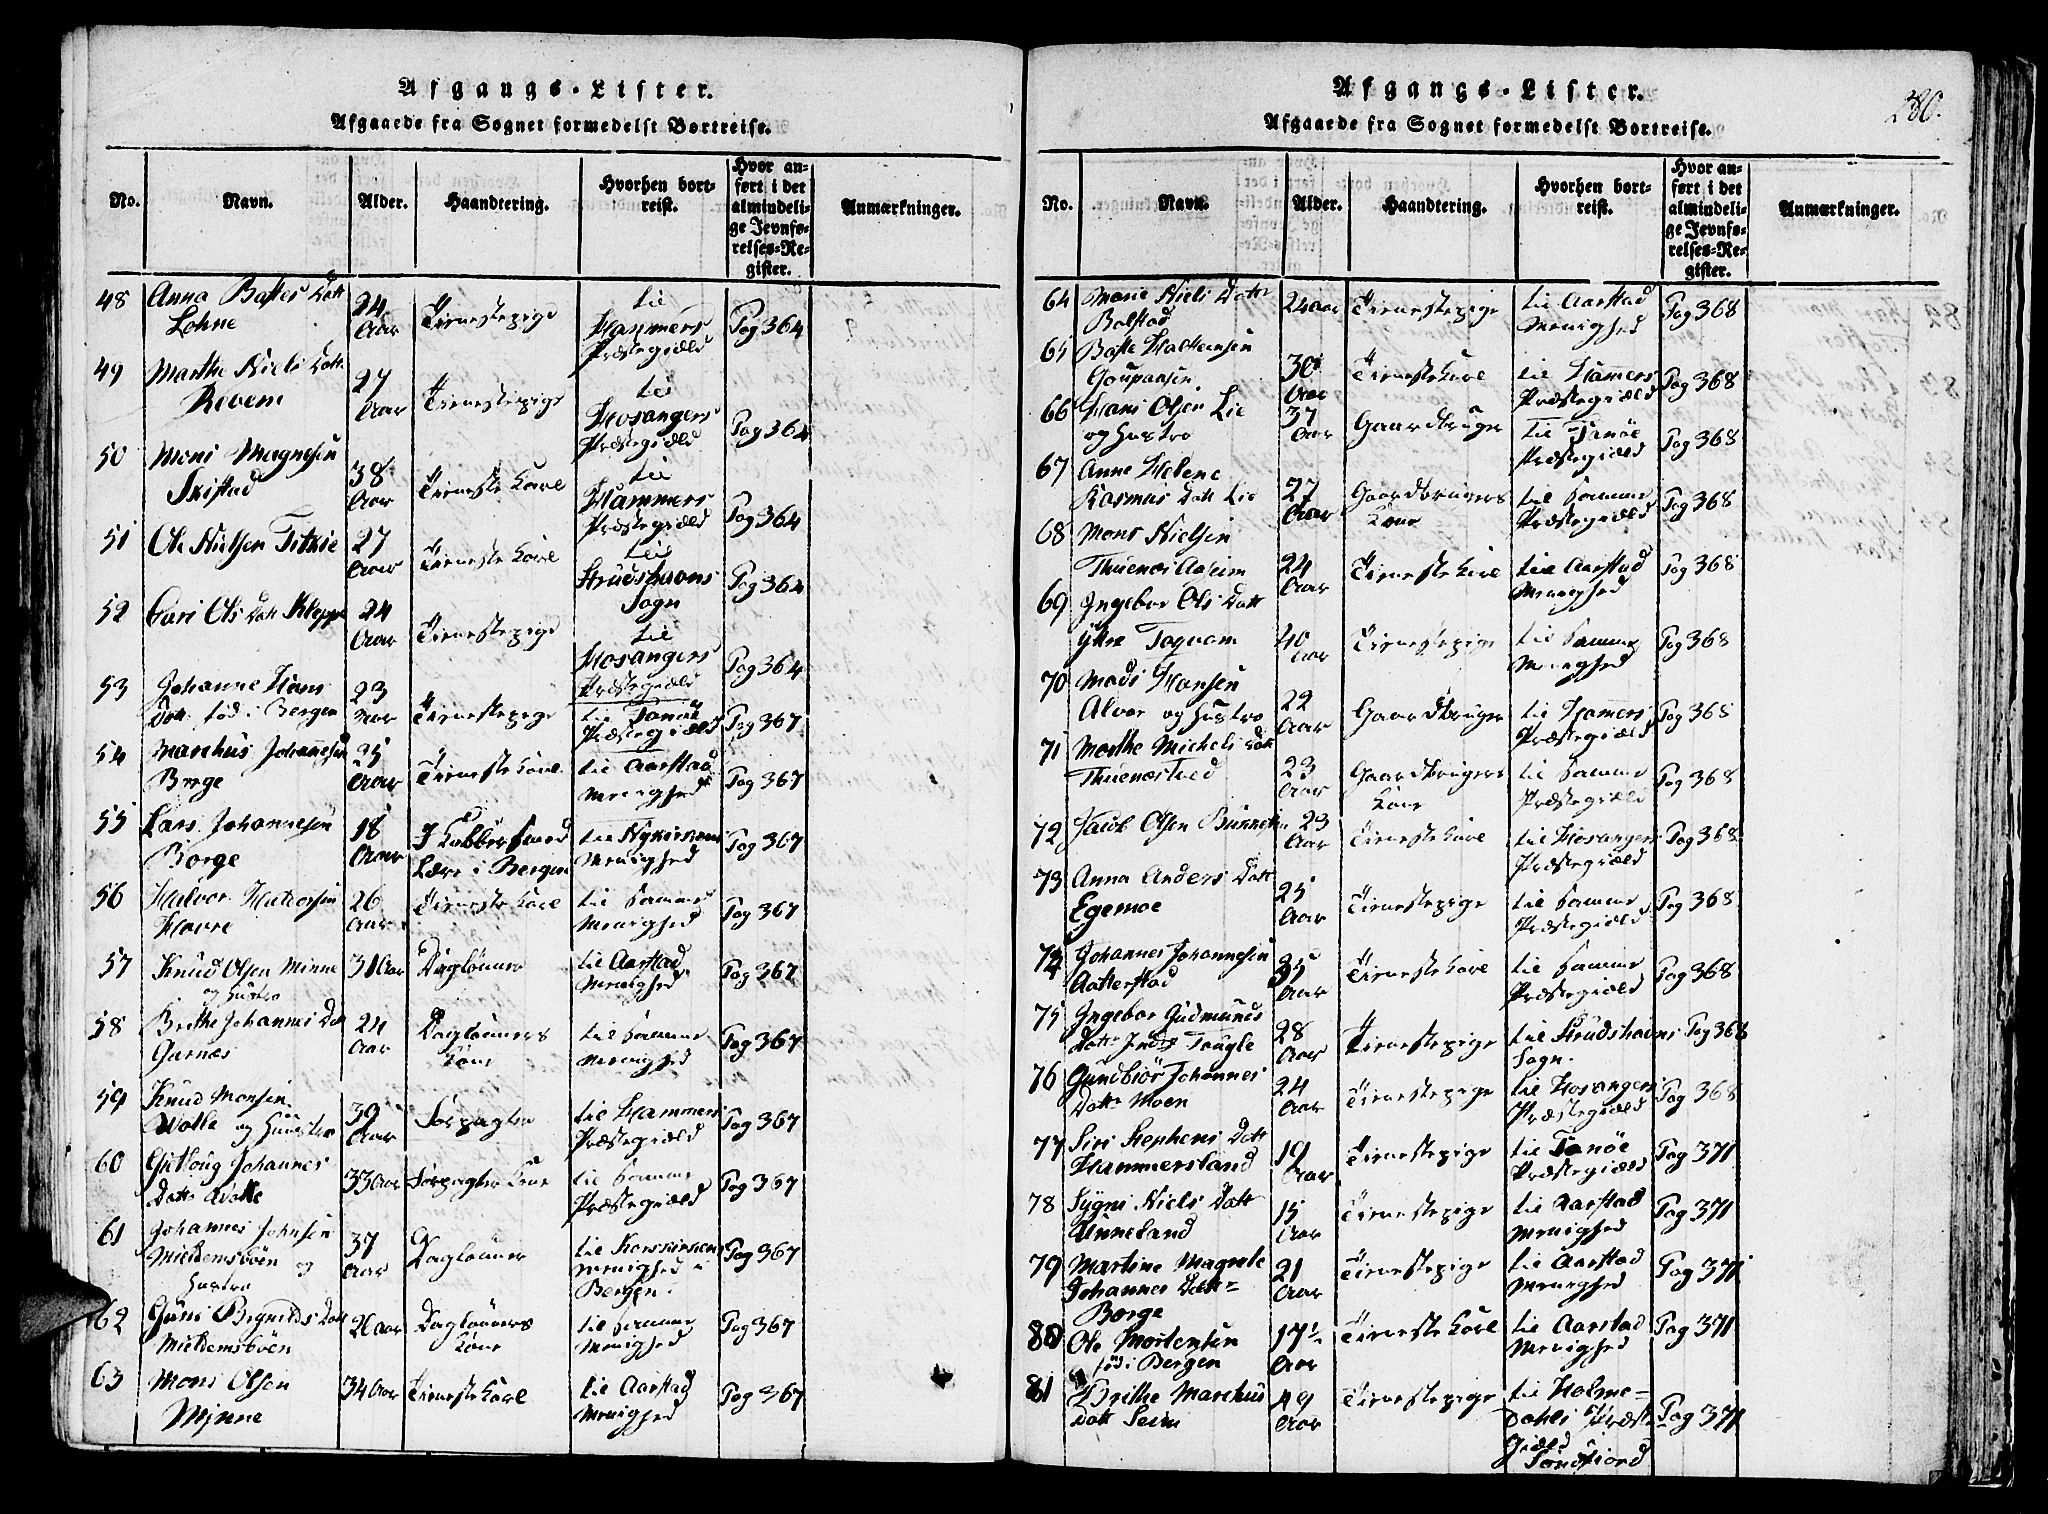 Afgangs-Lister.
Afgaaede fra Sognet formedelst Bortreise.
No. Navn. Alder. Haandtering. Hvorhen bortreist. Hvor anført i det almindelige Jevnførelses-Register. Anmærkninger.
48 Anna Dott Lohne 24 Aar Tienestepige til Hammers Præstegiæld Pag 364
49 Marthe Niels Dott Rivem 27 Aar Tienestepige til Hosangers Præstegiæld Pag 364
50 Mons Magnesen Skistad 38 Aar Tieneste Karl til Hammers Præstegiæld Pag 364
51 Ole Nielsen Titkie 27 Aar Tieneste Karl til Strudshavns Sogn Pag 364
52 Cari Ols Dott Kleppe 24 Aar Tienestepige til Hosangers Præstegiæld Pag 364
53 Johanne Hans Dott. fød i Bergen 23 Aar Tienestepige til Fanöe Præstegiæld Pag 367
54 Marchus Johannesen Borge 25 Aar Tieneste Karl til Aarstad Menighed Pag 367
55 Lars Johannesen Borge 18 Aar I Kobbersmed Lære i Bergen til Nykirkens Menighed Pag 367
56 Halvor Havre 26 Aar Tieneste Karl til samme Menighed Pag 367
57 Knud Olsen Minne og Hustro 31 Aar Daglønner til Aarstad Menighed Pag 367
58 Brithe Johannes Dott Garnæs 24 Aar Daglønners Kone til samme Menighed Pag 367
59 Knud Monsen Wolle og Huustro 39 Aar Forpagter til Hammers Præstegiæld Pag 367
60 Gietloug Johannes Dott Wolle 33 Aar Forpagter Kone til samme Præstegiæld Pag 367
61 Johannes Johnsen Mieldemsbøen og Hustro 37 Aar Daglønner til Korskirkens menighed i Bergen. Pag 367
62 Guni Dott Mieldemsbøen 26 Aar Daglønners Kone til samme Menighed Pag 367
63 Mons Olsen Minne 34 Aar Tieneste Karl til Aarstad Menighed Pag 367
Afgangs-Lister.
280.
Afgaaede fra Sognet formedelst Bortreise.
No. Navn. Alder. Haandtering. Hvorhen bortreist. Hvor anført i det almindelige Jevnførelses-Register. Anmærkninger.
64 Marie Niels Dott Bolstad 24 Aar Tienestepige til Aarstad Menighed Pag 368
65 Goupaasen 30 Aar Tieneste Karl til Hamers Præstegiæld Pag 368
66 Hans Olsen Lie og Hustro 37 Aar Gaardbruger til Fanöe Præstegiæld Pag 368
67 Anne Helene Rasmus Dott Lie 27 Aar Gaardbrugers Kone til samme Præstegiæld Pag 368
68 Mons Nielsen Thuenæs Aaseim 24 Aar Tieneste Karl til Aarstad Menighed Pag 368
69 Ingebor Ols Dott Ytre Toqvam 40 Aar Tienestepige til samme Menighed Pag 368
70 Mads Hansen Alvor og Hustro 22 Aar Gaardbruger til Hamers Præstegiæld Pag 368
71 Marthe Michels Dott Thuenæs Tved 23 Aar Gaardbrugers Kone til samme Præstegiæld Pag 368
72 Jacob Olsen 23 Aar Tieneste Karl til Hosangers Præstegiæld Pag 368
73 Anna Anders Dott Egemoe 25 Aar Tienestepige til samme Præstegiæld Pag 368
74 Johannes Johannesen Aatterstad 35 Aar Tieneste Karl til samme Præstegiæld Pag 368
75 Ingebor Gudmunds Dott Indre Tougle 28 Aar Tienestepige til Strudshavns Sogn. Pag 368
76 Gundbiör Johannes Dott Moen 24 Aar Tienestepige til Hosangers Præstegiæld Pag 368
77 Siri Stephens Dott Hammersland 19 Aar Tienestepige til Fanöe Præstegiæld Pag 371
78 Sygni Niels Dott Unneland 15 Aar Tienestepige til Aarstad Menighed Pag 371
79 Martine Magrele Johannes Dott Borge 21 Aar Tienestepige til Aarstad Menighed Pag 371
80 Ole Mortensen fød i Bergen 17½ Aar Tieneste Karl til Aarstad Menighed Pag 371
81 Brithe Marchus Dott Seim 49 Aar Tienestepige til Holmedahls Præstegiæld Søndfiord Pag 371